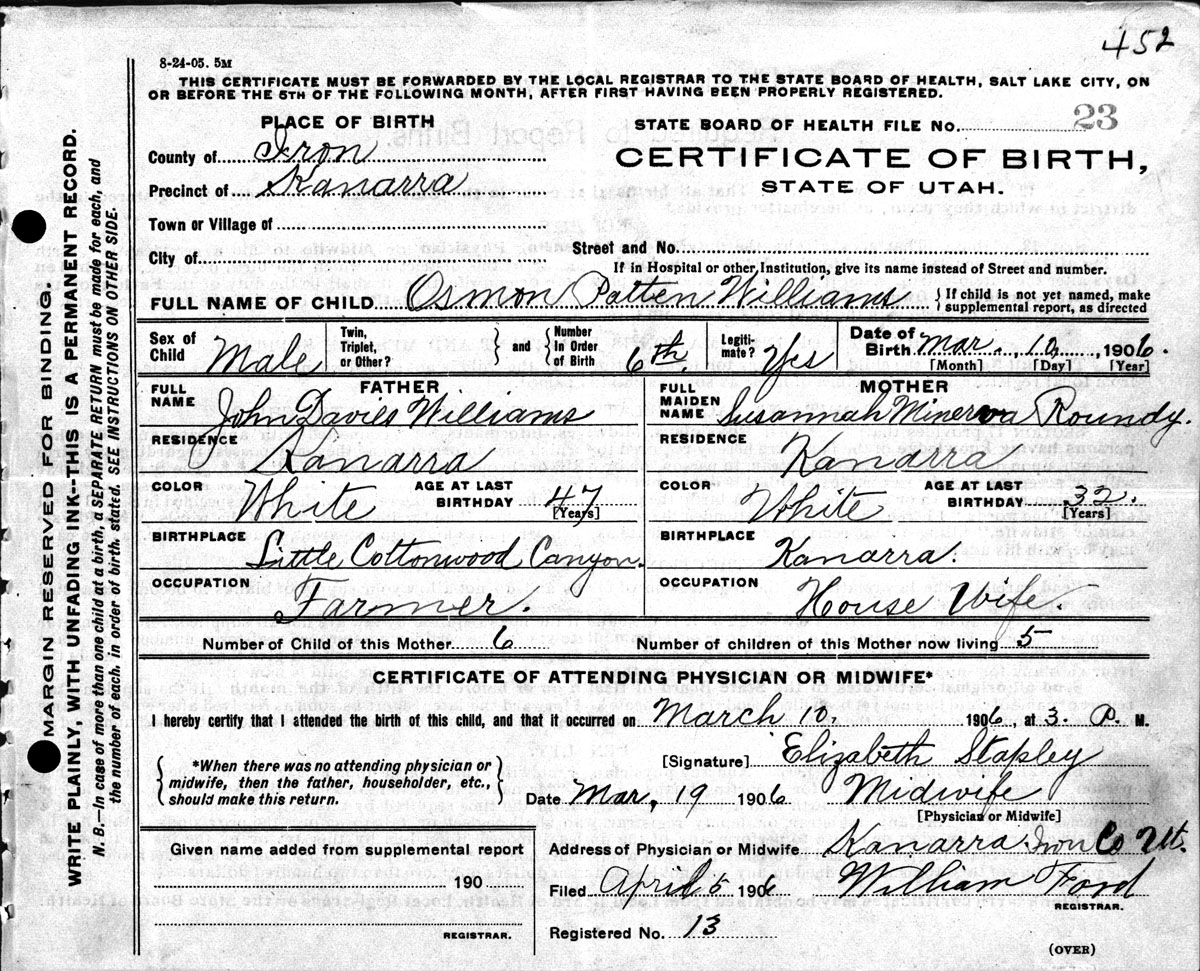 452
8-24-05. 5M
THIS CERTIFICATE MUST BE FORWARDED BY THE LOCAL REGISTRAR TO THE STATE BOARD OF HEALTH, SALT LAKE CITY, ON
OR BEFORE THE 5TH OF THE FOLLOWING MONTH, AFTER FIRST HAVING BEEN PROPERLY REGISTERED.
MARGIN RESERVED FOR BINDING.
WRITE PLAINLY, WITH UNFADING INK--THIS IS A PERMANENT RECORD.
N. B.—In case of more than one child at a birth, a SEPARATE RETURN must be made for each, and
the number of each, in order of birth, stated. SEE INSTRUCTIONS ON OTHER SIDE.
PLACE OF BIRTH
STATE BOARD OF HEALTH FILE No. 23
County of Iron
CERTIFICATE OF BIRTH,
Precinct of Kanarra
STATE OF UTAH.
Town or Village of
City of
Street and No.
If in Hospital or other Institution, give its name instead of Street and number.
FULL NAME OF CHILD Osmon Patten Williams { If child is not yet named, make
supplemental report, as directed
Sex of Child Male
Twin, Triplet, or Other? } and { Number In Order of Birth 6th
Legitimate? Yes
Date of Birth Mar. 10, 1906.
[Month] [Day] [Year]
FATHER
FULL NAME John Davies Williams
MOTHER
FULL MAIDEN NAME Susannah Minerva Roundy.
RESIDENCE Kanarra
RESIDENCE Kanarra
COLOR White AGE AT LAST BIRTHDAY 47 [Years]
COLOR White AGE AT LAST BIRTHDAY 32. [Years]
BIRTHPLACE Little Cottonwood Canyon.
BIRTHPLACE Kanarra.
OCCUPATION Farmer.
OCCUPATION House Wife.
Number of Child of this Mother 6
Number of children of this Mother now living 5
CERTIFICATE OF ATTENDING PHYSICIAN OR MIDWIFE*
I hereby certify that I attended the birth of this child, and that it occurred on March 10, 1906, at 3. M.
{ *When there was no attending physician or
midwife, then the father, householder, etc.,
should make this return. }
[Signature] Elizabeth Stapley
Date Mar, 19 1906 Midwife
[Physician or Midwife]
Given name added from supplemental report
190
REGISTRAR.
Address of Physician or Midwife Kanarra Iron Co Ut.
Filed April 5 1906 William Ford
REGISTRAR.
Registered No. 13
(OVER)